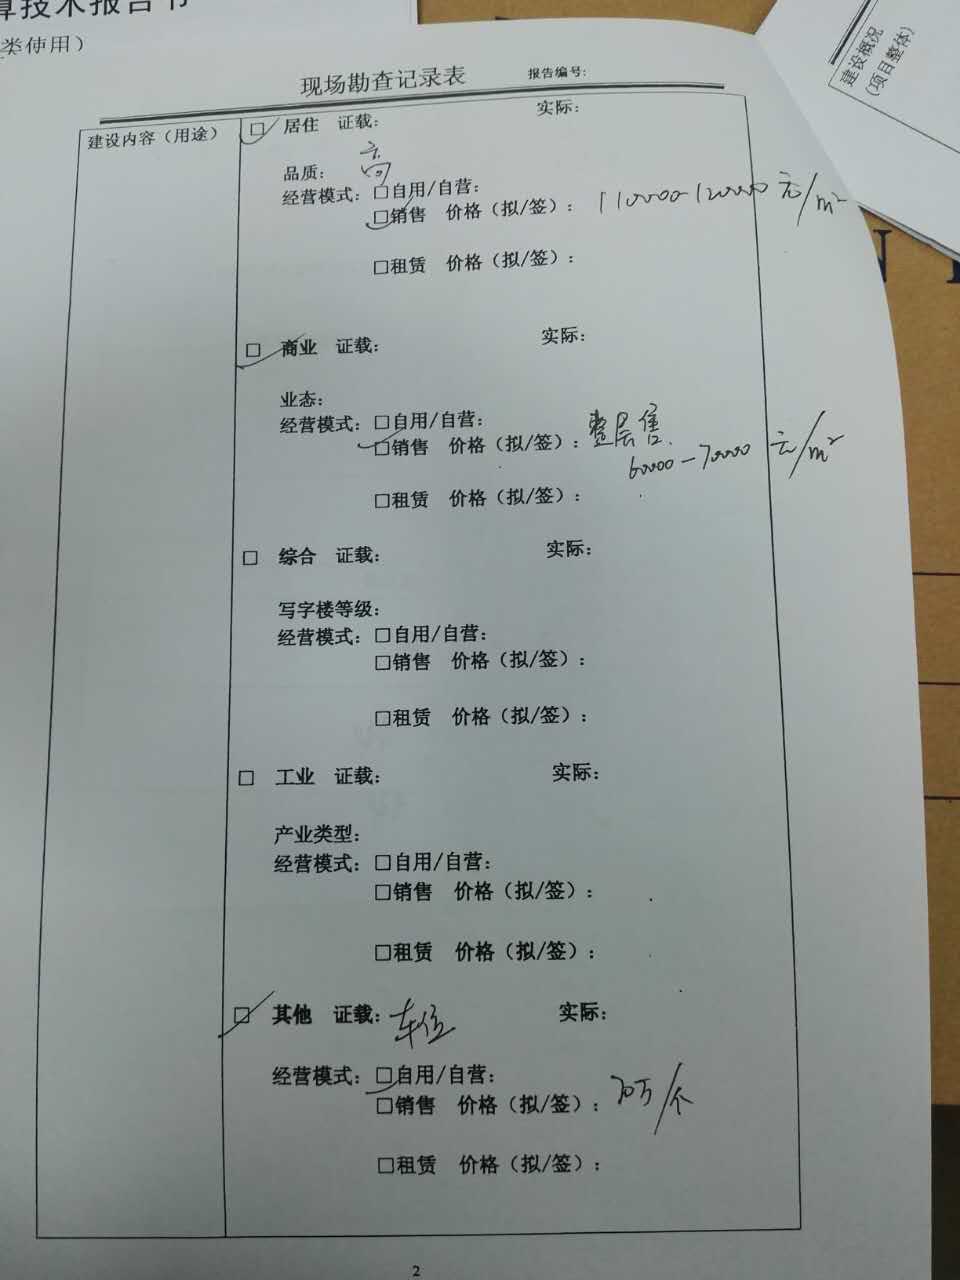 算技术报告书
类使用）
建设概况
(项目整体)
现场勘查记录表 报告编号:
建设内容（用途）
☑ 居住 证载: 实际:
品质: 高
经营模式: □自用/自营:
☑销售 价格（拟/签）: 110000-120000 元/m²
□租赁 价格（拟/签）:
☑ 商业 证载: 实际:
业态:
经营模式: □自用/自营: 整层售
☑销售 价格（拟/签）: 60000-70000 元/m²
□租赁 价格（拟/签）:
□ 综合 证载: 实际:
写字楼等级:
经营模式: □自用/自营:
□销售 价格（拟/签）:
□租赁 价格（拟/签）:
□ 工业 证载: 实际:
产业类型:
经营模式: □自用/自营:
□销售 价格（拟/签）:
□租赁 价格（拟/签）:
☑ 其他 证载: 车位 实际:
经营模式: □自用/自营:
☑销售 价格（拟/签）: 70万/个
□租赁 价格（拟/签）:
2